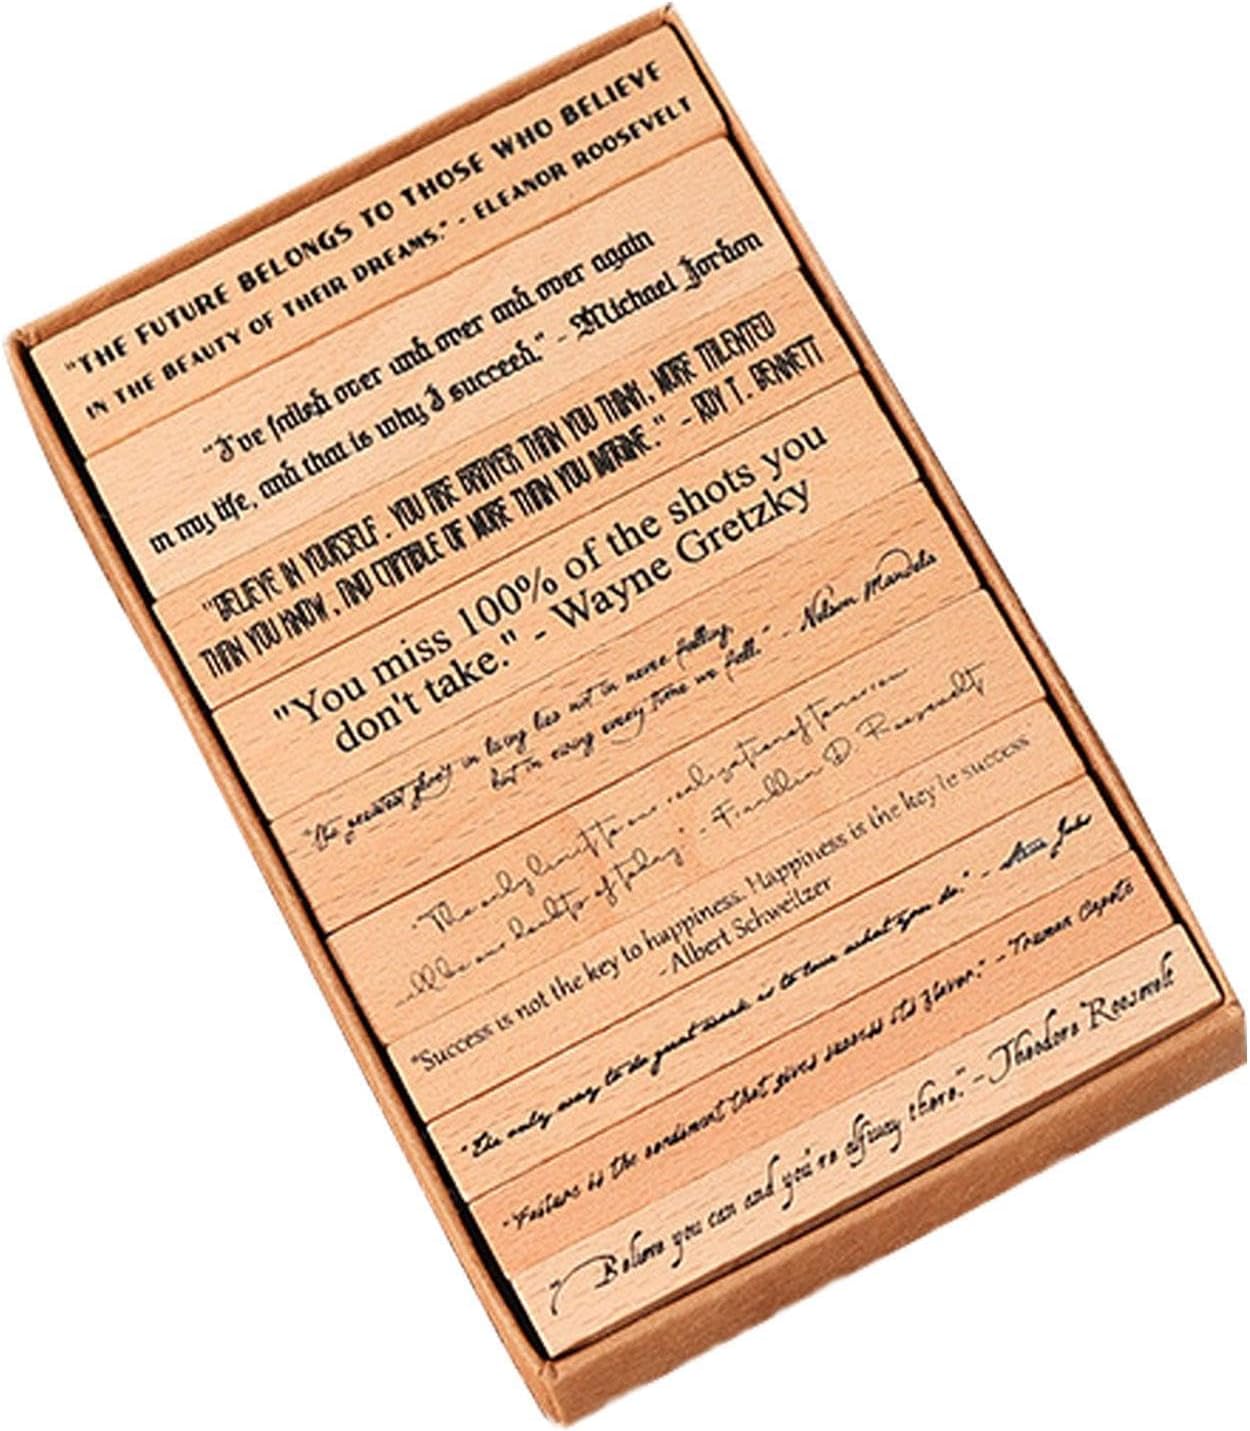 "THE FUTURE BELONGS TO THOSE WHO BELIEVE
IN THE BEAUTY OF THEIR DREAMS." - ELEANOR ROOSEVELT
"I've failed over and over and over again
in my life, and that is why I succeed." - Michael Jordon
"BELIEVE IN YOURSELF. YOU ARE BRAVER THAN YOU THINK, MORE TALENTED
THAN YOU KNOW, AND CAPABLE OF MORE THAN YOU IMAGINE." - ROY T. BENNETT
"You miss 100% of the shots you
don't take." - Wayne Gretzky
"The greatest glory in living lies not in never falling,
but in rising every time we fall." - Nelson Mandela
"The only limit to our realization of tomorrow
will be our doubts of today." - Franklin D. Roosevelt
"Success is not the key to happiness. Happiness is the key to success
-Albert Schweitzer
"The only way to do great work is to love what you do." - Steve Jobs
"Failure is the condiment that gives success its flavor." - Truman Capote
"Believe you can and you're alfway there." - Theodore Roosevelt